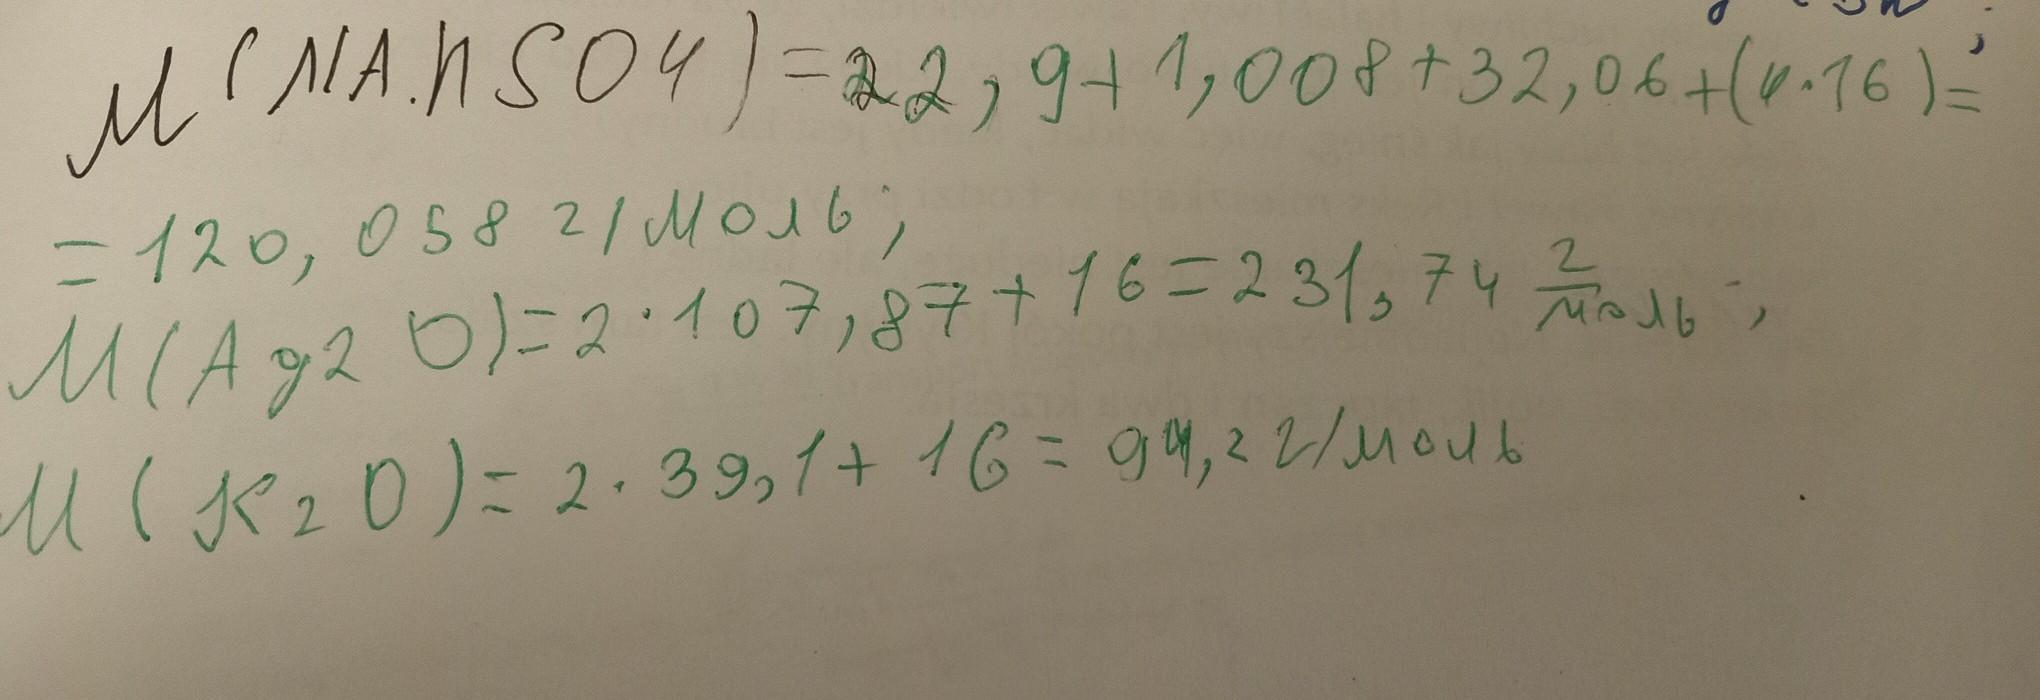 M(NA.hSO4)=22,9+1,008+32,06+(4·16)=
=120,058 г/моль;
M(Ag2O)=2·107,87+16=231,74 г/моль;
M(K2O)=2·39,1+16=94,2 г/моль